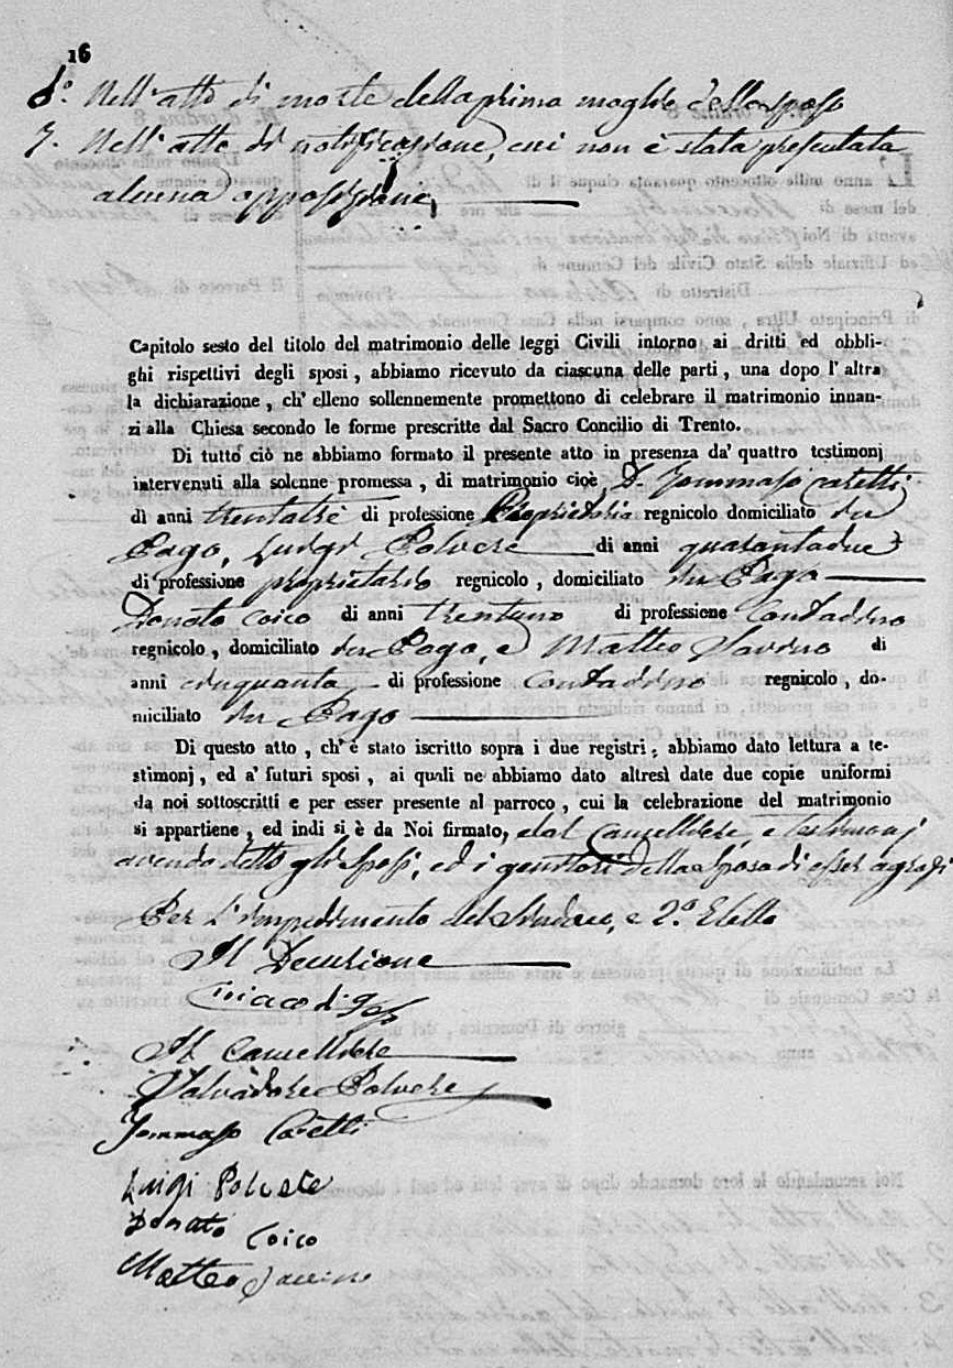 16
6°. Nell'atto di morte della prima moglie dello sposo
7. Nell'atto di notificazione, cui non è stata presentata
alcuna opposizione,
Capitolo sesto del titolo del matrimonio delle leggi Civili intorno ai dritti ed obbli-
ghi rispettivi degli sposi, abbiamo ricevuto da ciascuna delle parti, una dopo l'altra
la dichiarazione, ch' elleno sollennemente promettono di celebrare il matrimonio innan-
zi alla Chiesa secondo le forme prescritte dal Sacro Concilio di Trento.
Di tutto ciò ne abbiamo formato il presente atto in presenza da' quattro testimonj
intervenuti alla solenne promessa, di matrimonio cioè D. Tommaso Caretti
di anni trentatre di professione Proprietario regnicolo domiciliato in
Pago, Luigi Polvere di anni quarantadue
di professione proprietario regnicolo, domiciliato in Pago
Donato Coico di anni trentuno di professione Contadino
regnicolo, domiciliato in Pago, e Matteo Savino di
anni cinquanta di professione Contadino regnicolo, do-
miciliato in Pago
Di questo atto, ch'è stato iscritto sopra i due registri, abbiamo dato lettura a te-
stimonj, ed a' futuri sposi, ai quali ne abbiamo dato altresì date due copie uniformi
da noi sottoscritti e per esser presente al parroco, cui la celebrazione del matrimonio
si appartiene, ed indi si è da Noi firmato, e dal Cancelliere, e testimonj
avendo detto gli Sposi, ed i genitori della Sposa di esser
Per l'impedimento del Sindaco, e 2.° Eletto
Il Decurione
Ciriaco
Il Cancelliere
Salvadore Polvere
Tommaso Caretti
Luigi Polvere
Donato Coico
Matteo Savino